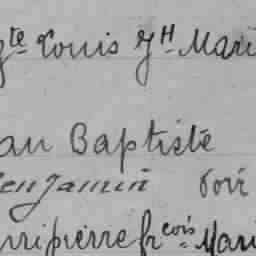 gte Louis Jh Mari
an Baptiste
enjamin voir
nripierre frcois Mari